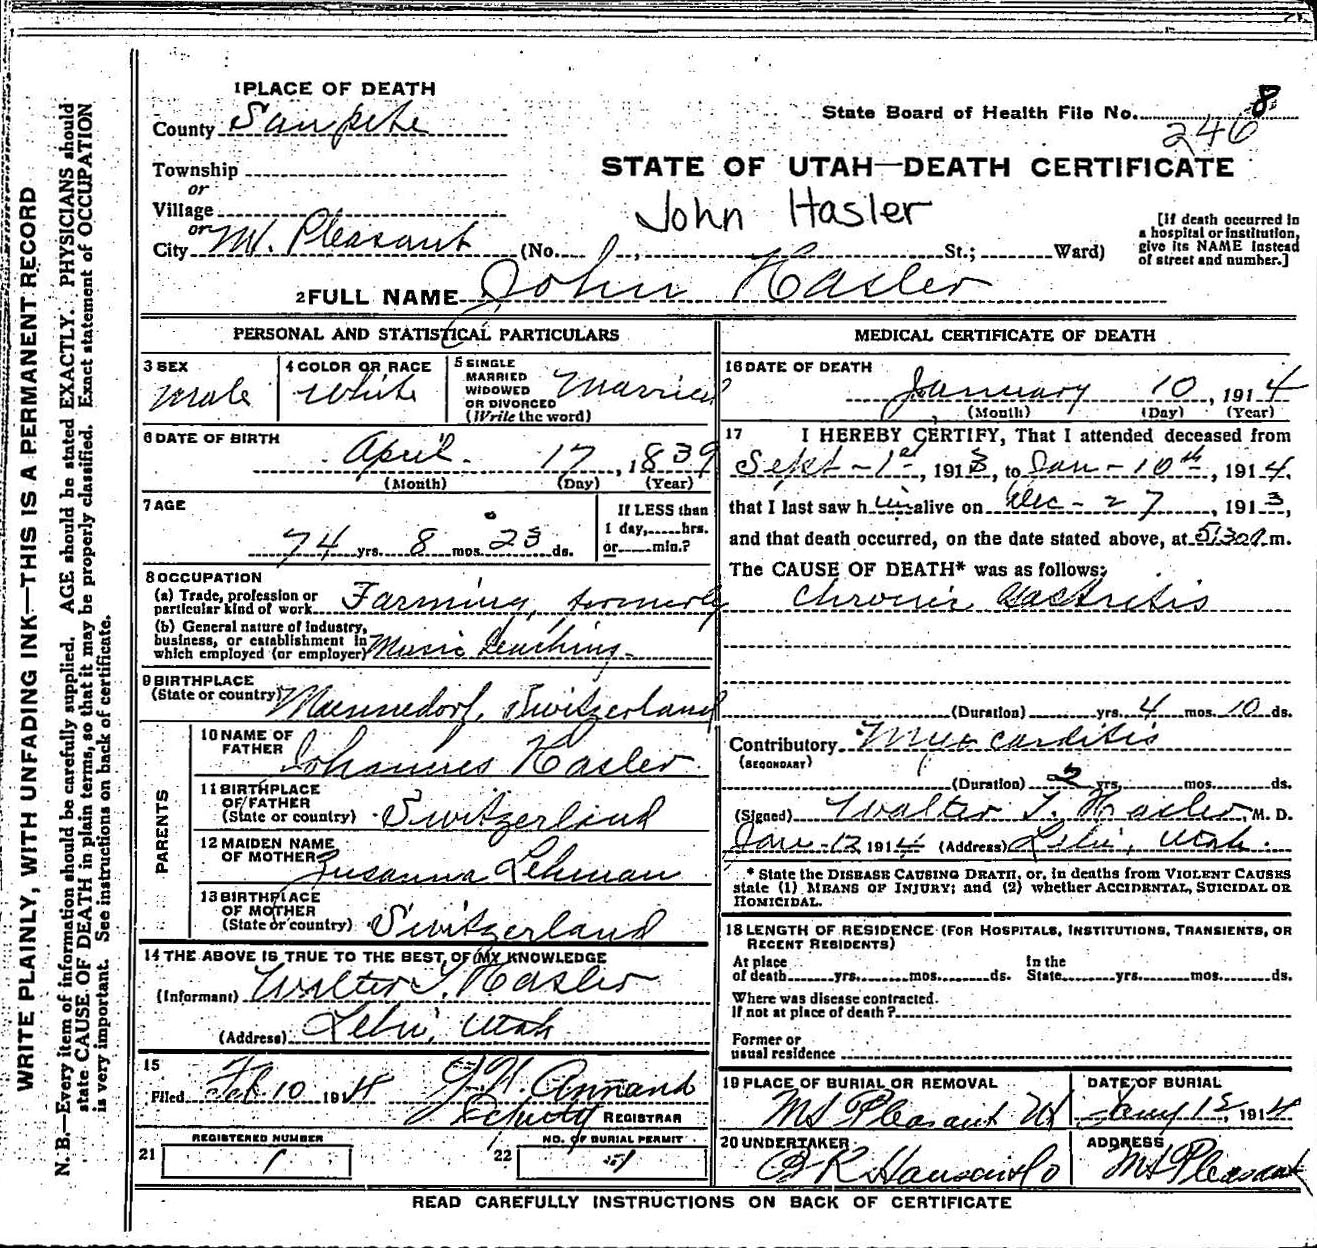 WRITE PLAINLY, WITH UNFADING INK—THIS IS A PERMANENT RECORD
N. B.—Every item of information should be carefully supplied. AGE should be stated EXACTLY. PHYSICIANS should
state CAUSE OF DEATH in plain terms, so that it may be properly classified. Exact statement of OCCUPATION
is very important. See instructions on back of certificate.
1 PLACE OF DEATH
County Sanpete
Township
or
Village
or
City Mt. Pleasant
State Board of Health File No. 8
246
STATE OF UTAH—DEATH CERTIFICATE
John Hasler
(No. , St.; Ward)
[If death occurred in
a hospital or institution,
give its NAME instead
of street and number.]
2 FULL NAME John Hasler
PERSONAL AND STATISTICAL PARTICULARS
3 SEX
Male
4 COLOR OR RACE
White
5 SINGLE
MARRIED
WIDOWED
OR DIVORCED
(Write the word)
Married
6 DATE OF BIRTH
April 17, 1839
(Month) (Day) (Year)
7 AGE
74 yrs. 8 mos. 23 ds.
If LESS than
1 day, hrs.
or min.?
8 OCCUPATION
(a) Trade, profession or
particular kind of work Farming, formerly
(b) General nature of industry,
business, or establishment in
which employed (or employer) Music Teaching
9 BIRTHPLACE
(State or country) Mannedorf, Switzerland
PARENTS
10 NAME OF
FATHER Johannes Hasler
11 BIRTHPLACE
OF FATHER
(State or country) Switzerland
12 MAIDEN NAME
OF MOTHER Susanna Lehman
13 BIRTHPLACE
OF MOTHER
(State or country) Switzerland
14 THE ABOVE IS TRUE TO THE BEST OF MY KNOWLEDGE
(Informant) Walter T. Hasler
(Address) Lehi, Utah
15
Filed Feb 10 1914 Annand
Deputy REGISTRAR
REGISTERED NUMBER
21 1
NO. OF BURIAL PERMIT
22 1
MEDICAL CERTIFICATE OF DEATH
16 DATE OF DEATH
January 10, 1914
(Month) (Day) (Year)
17 I HEREBY CERTIFY, That I attended deceased from
Sept - 1st, 1913, to Jan - 10th, 1914,
that I last saw him alive on Dec - 27, 1913,
and that death occurred, on the date stated above, at 5:30 a.m.
The CAUSE OF DEATH* was as follows:
Chronic Gastritis
(Duration) yrs. 4 mos. 10 ds.
Contributory Myocarditis
(SECONDARY)
(Duration) 2 yrs. mos. ds.
(Signed) Walter T. Hasler, M. D.
Jan - 12, 1914 (Address) Lehi, Utah.
* State the DISEASE CAUSING DEATH, or, in deaths from VIOLENT CAUSES
state (1) MEANS OF INJURY; and (2) whether ACCIDENTAL, SUICIDAL OR
HOMICIDAL.
18 LENGTH OF RESIDENCE (FOR HOSPITALS, INSTITUTIONS, TRANSIENTS, OR
RECENT RESIDENTS)
At place
of death yrs. mos. ds.
In the
State yrs. mos. ds.
Where was disease contracted.
If not at place of death?
Former or
usual residence
19 PLACE OF BURIAL OR REMOVAL
Mt Pleasant Ut
DATE OF BURIAL
Jany 12, 1914
20 UNDERTAKER
ADDRESS
Mt Pleasant
READ CAREFULLY INSTRUCTIONS ON BACK OF CERTIFICATE